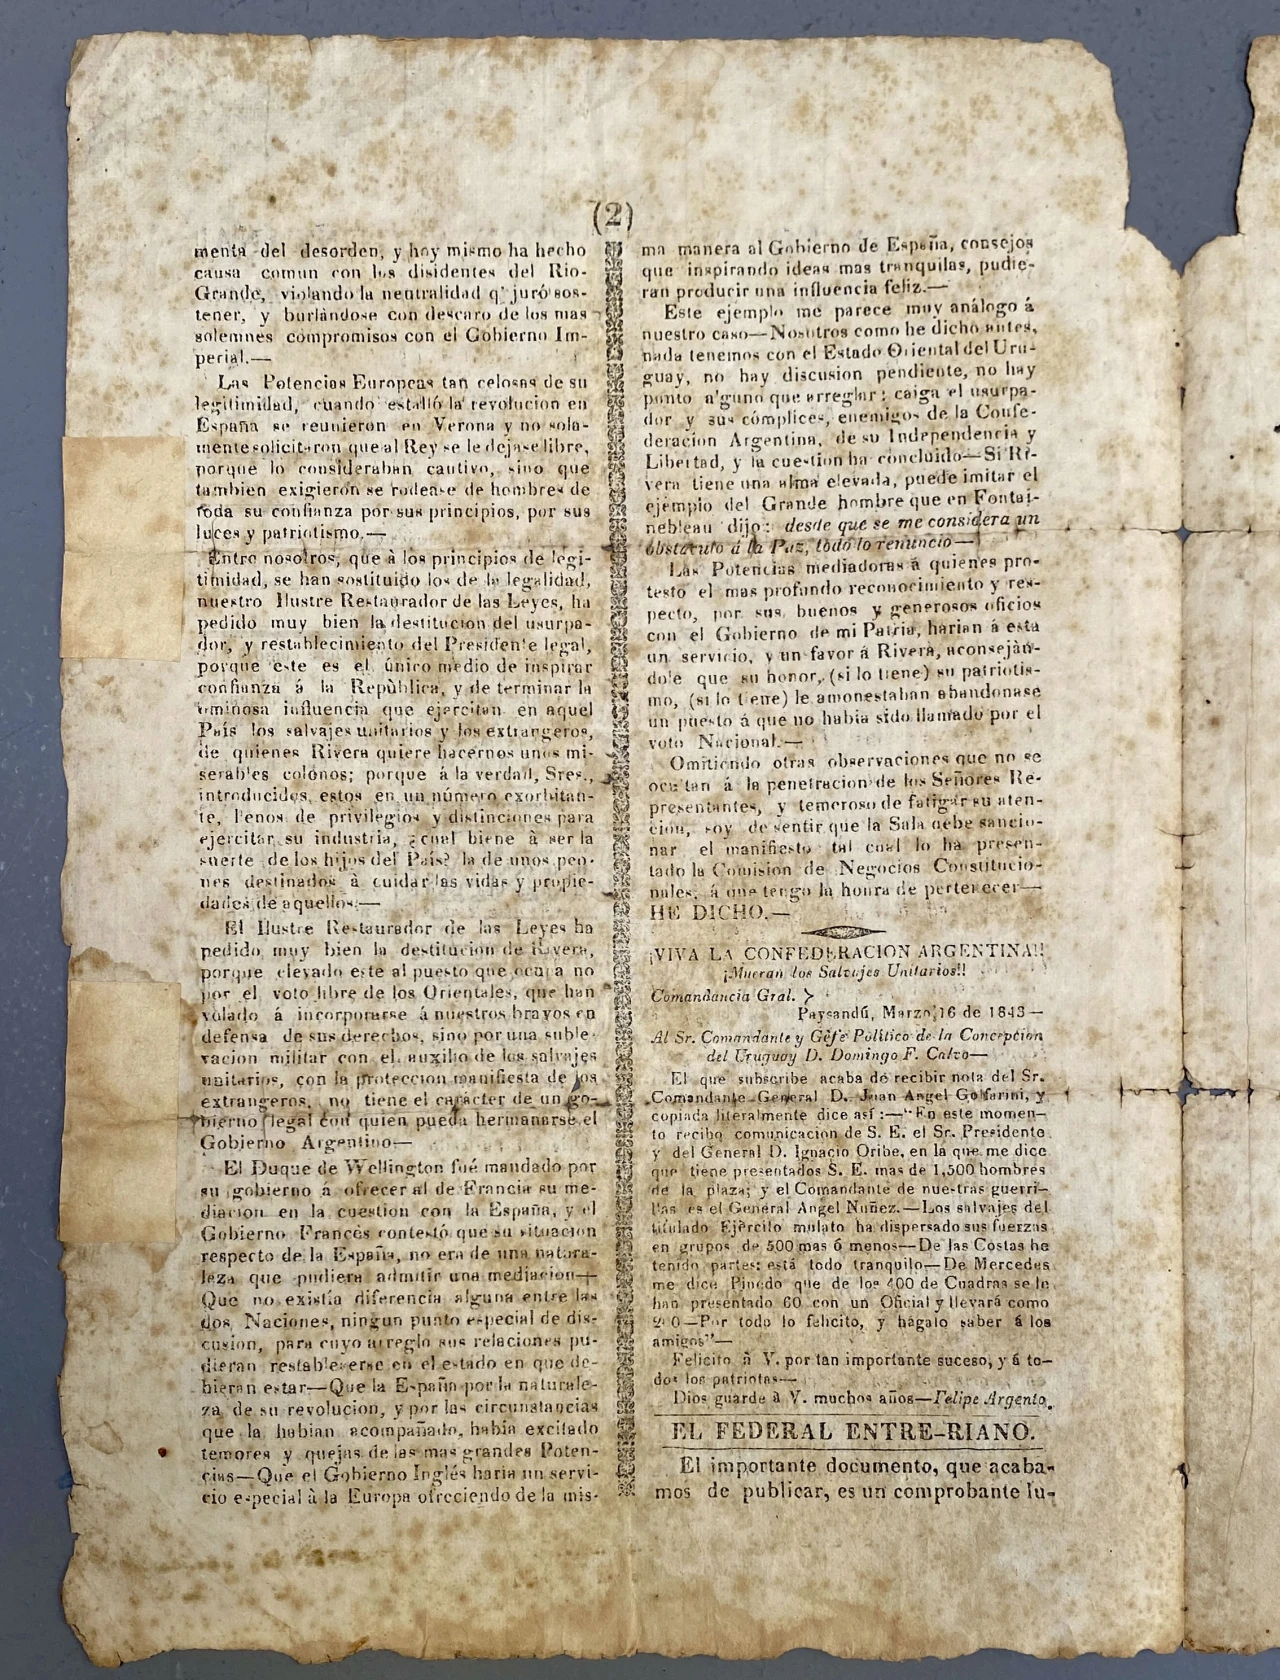 (2)
menta del desorden, y hoy mismo ha hecho
causa comun con los disidentes del Rio-
Grande, violando la neutralidad q' juró sos-
tener, y burlándose con descaro de los mas
solemnes compromisos con el Gobierno Im-
perial.—
Las Potencias Europeas tan celosas de su
legitimidad, cuando estalló la revolucion en
España se reunieron en Verona y no sola-
mente solicitaron que al Rey se le dejase libre,
porque lo consideraban cautivo, sino que
tambien exigieron se rodease de hombres de
toda su confianza por sus principios, por sus
luces y patriotismo.—
Entre nosotros, que à los principios de legi-
timidad, se han sostituido los de la legalidad,
nuestro Ilustre Restaurador de las Leyes, ha
pedido muy bien la destitucion del usurpa-
dor, y restablecimiento del Presidente legal,
porque este es el único medio de inspirar
confianza á la Repùblica, y de terminar la
ominosa influencia que ejercitan en aquel
País los salvajes unitarios y los extrangeros,
de quienes Rivera quiere hacernos unos mi-
serables colónos; porque á la verdad, Sres.,
introducidos estos en un número exorbitan-
te, llenos de privilegios y distinciones para
ejercitar su industria, ¿cual biene à ser la
suerte de los hijos del País? la de unos peo-
nes destinados à cuidar las vidas y propie-
dades de aquellos.—
El Ilustre Restaurador de las Leyes ha
pedido muy bien la destitucion de Rivera,
porque elevado este al puesto que ocupa no
por el voto libre de los Orientales, que han
volado á incorporarse á nuestros bravos en
defensa de sus derechos, sino por una suble-
vacion militar con el auxilio de los salvajes
unitarios, con la proteccion manifiesta de los
extrangeros, no tiene el carácter de un go-
bierno legal con quien pueda hermanarse el
Gobierno Argentino—
El Duque de Wellington fué mandado por
su gobierno á ofrecer al de Francia su me-
diacion en la cuestion con la España, y el
Gobierno Francés contestó que su situacion
respecto de la España, no era de una natura-
leza que pudiera admitir una mediacion—
Que no existía diferencia alguna entre las
dos Naciones, ningun punto especial de dis-
cusion, para cuyo arreglo sus relaciones pu-
dieran restablecerse en el estado en que de-
bieran estar—Que la España por la naturale-
za de su revolucion, y por las circunstancias
que la habian acompañado, había excitado
temores y quejas de las mas grandes Poten-
cias—Que el Gobierno Inglés haria un servi-
cio especial à la Europa ofreciendo de la mis-
ma manera al Gobierno de España, consejos
que inspirando ideas mas tranquilas, pudie-
ran producir una influencia feliz.—
Este ejemplo me parece muy análogo á
nuestro caso—Nosotros como he dicho antes,
nada tenemos con el Estado Oriental del Uru-
guay, no hay discusion pendiente, no hay
punto alguno que arreglar: caiga el usurpa-
dor y sus cómplices, enemigos de la Confe-
deracion Argentina, de su Independencia y
Libertad, y la cuestion ha concluido—Si Ri-
vera tiene una alma elevada, puede imitar el
ejempio del Grande hombre que en Fontai-
nebleau dijo: desde que se me considera un
obstáculo á la Paz, todo lo renuncio—
Las Potencias mediadoras á quienes pro-
testo el mas profundo reconocimiento y res-
pecto, por sus buenos y generosos oficios
con el Gobierno de mi Patria, harian á esta
un servicio, y un favor á Rivera, aconseján-
dole que su honor, (si lo tiene) su patriotis-
mo, (si lo tiene) le amonestaban abandonase
un puesto á que no habia sido llamado por el
voto Nacional.—
Omitiendo otras observaciones que no se
ocultan á la penetracion de los Señores Re-
presentantes, y temeroso de fatigar su aten-
cion, soy de sentir que la Sala debe sancio-
nar el manifiesto tal cual lo ha presen-
tado la Comision de Negocios Constitucio-
nales, á que tengo la honra de pertenecer—
HE DICHO.—
¡VIVA LA CONFEDERACION ARGENTINA!!
¡Mueran los Salvajes Unitarios!!
Comandancia Gral. >
Paysandú, Marzo 16 de 1843—
Al Sr. Comandante y Gefe Político de la Concepcion
del Uruguay D. Domingo F. Calvo—
El que subscribe acaba de recibir nota del Sr.
Comandante General D. Juan Angel Golfarini, y
copiada literalmente dice así:—"En este momen-
to recibo comunicacion de S. E. el Sr. Presidente
y del General D. Ignacio Oribe, en la que me dice
que tiene presentados S. E. mas de 1,500 hombres
de la plaza; y el Comandante de nuestras guerri-
llas es el General Angel Nuñez.—Los salvajes del
titulado Ejército mulato ha dispersado sus fuerzas
en grupos de 500 mas ó menos—De las Costas he
tenido partes: está todo tranquilo—De Mercedes
me dice Pinedo que de los 400 de Cuadras se le
han presentado 60 con un Oficial y llevará como
—Por todo lo felicito, y hágalo saber á los
amigos"—
Felicito à V. por tan importante suceso, y á to-
dos los patriotas—
Dios guarde à V. muchos años—Felipe Argento.
EL FEDERAL ENTRE-RIANO.
El importante documento, que acaba-
mos de publicar, es un comprobante lu-